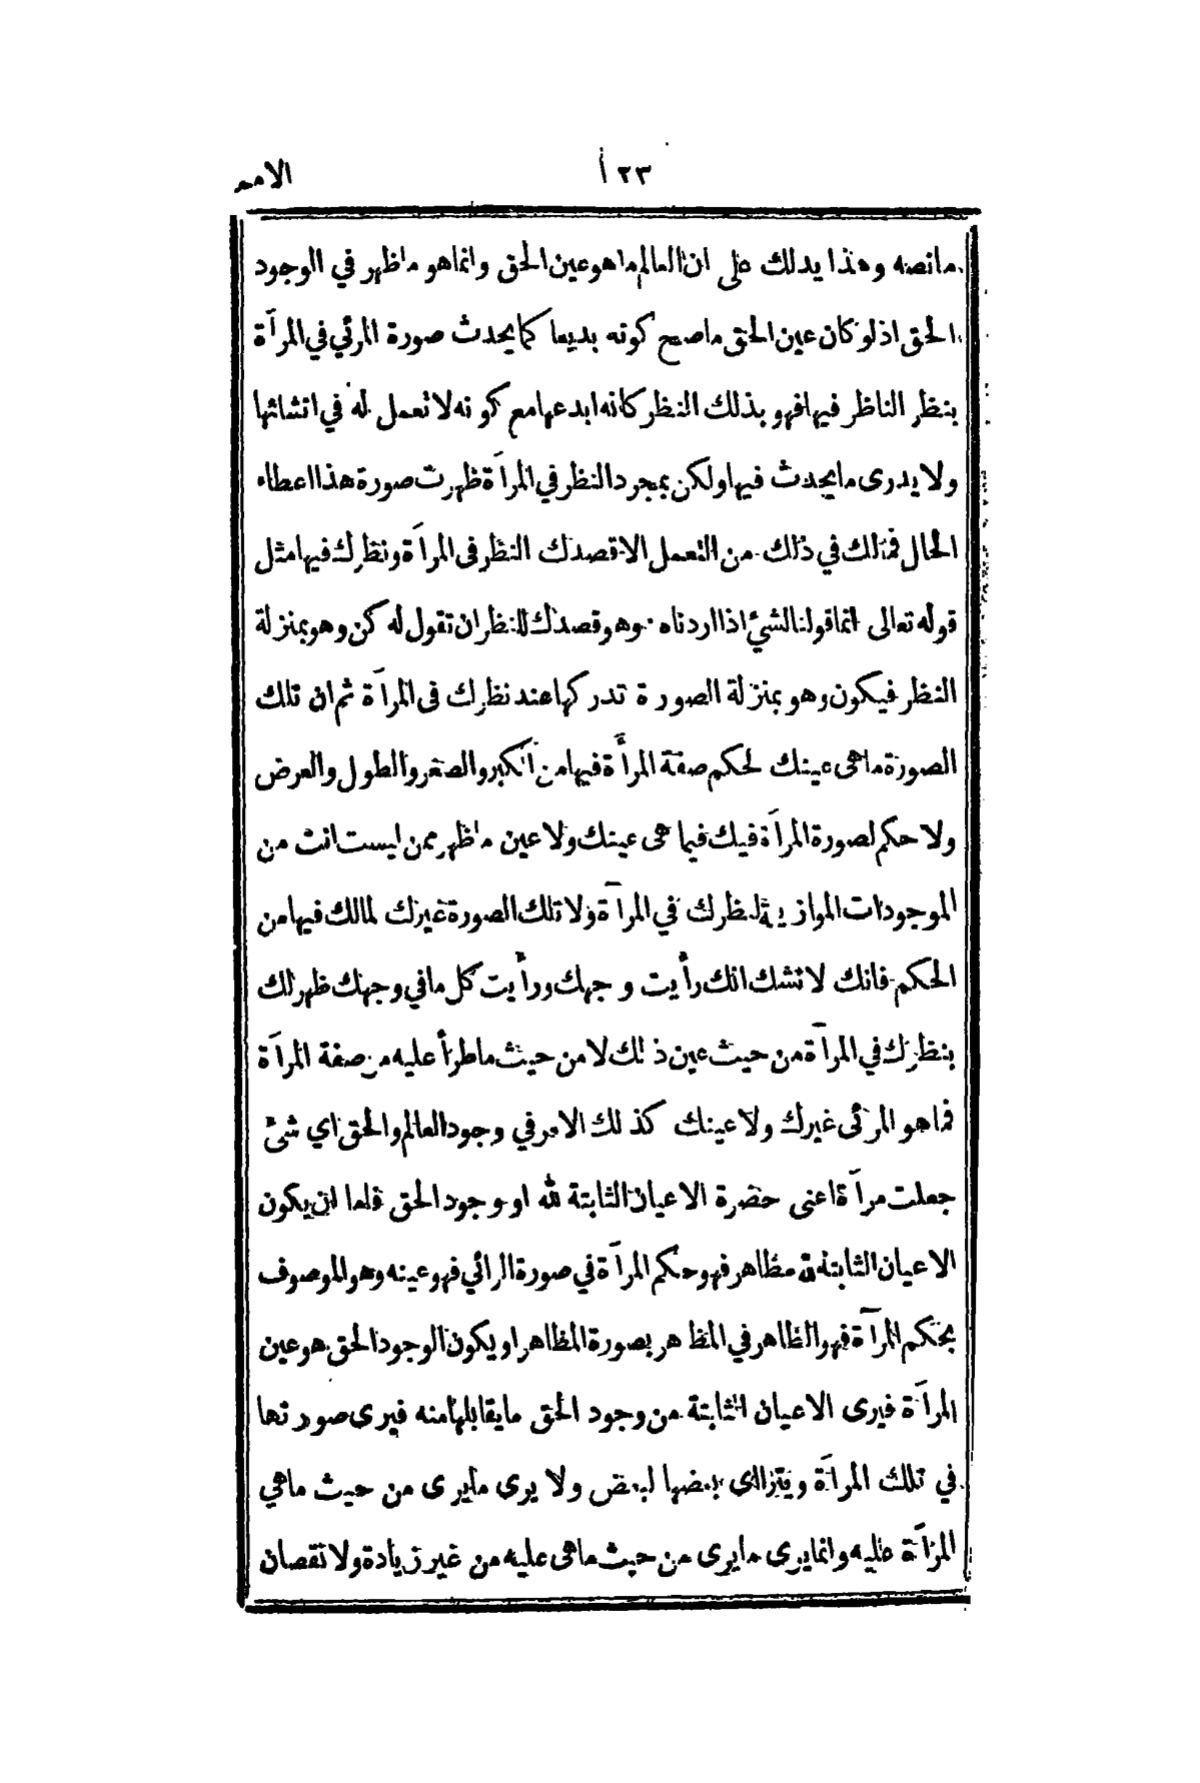 ١٢٣ الامم
مانصه وهذا يدلك على ان العالم ما هو عين الحق وانما هو ماظهر في الوجود
الحق اذلو كان عين الحق ماصح كونه بديعا كما يحدث صورة المرئي في المرآة
بنظر الناظر فيها فهو بذلك النظر كانه ابدعها مع كونه لا تعمل له في انشائها
ولا يدرى ما يحدث فيها ولكن بمجرد النظر في المرآة ظهرت صورة هذا اعطاه
الحال فمالك في ذلك من التعمل الا قصدك النظر فى المرآة ونظرك فيها مثل
قوله تعالى انما قولنا لشيء اذا اردناه وهو قصدك للنظر ان تقول له كن وهو بمنزلة
النظر فيكون وهو بمنزلة الصورة تدركها عند نظرك فى المرآة ثم ان تلك
الصورة ماهى عينك لحكم صفة المرأة فيها من الكبر والصغر والطول والعرض
ولا حكم لصورة المرآة فيك فيما هى عينك ولا عين ماظهر ممن ليست انت من
الموجودات الموازية لنظرك في المرآة ولا تلك الصورة غيرك لمالك فيها من
الحكم فانك لا تشك انك رأيت وجهك ورأيت كل مافي وجهك ظهر لك
بنظرك في المرآة من حيث عين ذلك لا من حيث ماطرأ عليه من صفة المرآة
فما هو المرئى غيرك ولا عينك كذلك الامر في وجود العالم والحق اي شئ
جعلت مرآة اعنى حضرة الاعيان الثابتة لله او وجود الحق فاما ان يكون
الاعيان الثابتة لله مظاهر فهو حكم المرآة في صورة الرائي فهو عينه وهو الموصوف
بحكم المرآة فهو الظاهر في المظاهر بصورة المظاهر او يكون الوجود الحق هو عين
المرآة فيرى الاعيان الثابتة من وجود الحق مايقابلها منه فيرى صورتها
في تلك المرآة ويتراآى بعضها لبعض ولا يرى مايرى من حيث ماهي
المرآة عليه وانما يرى مايرى من حيث ماهى عليه من غير زيادة ولا نقصان